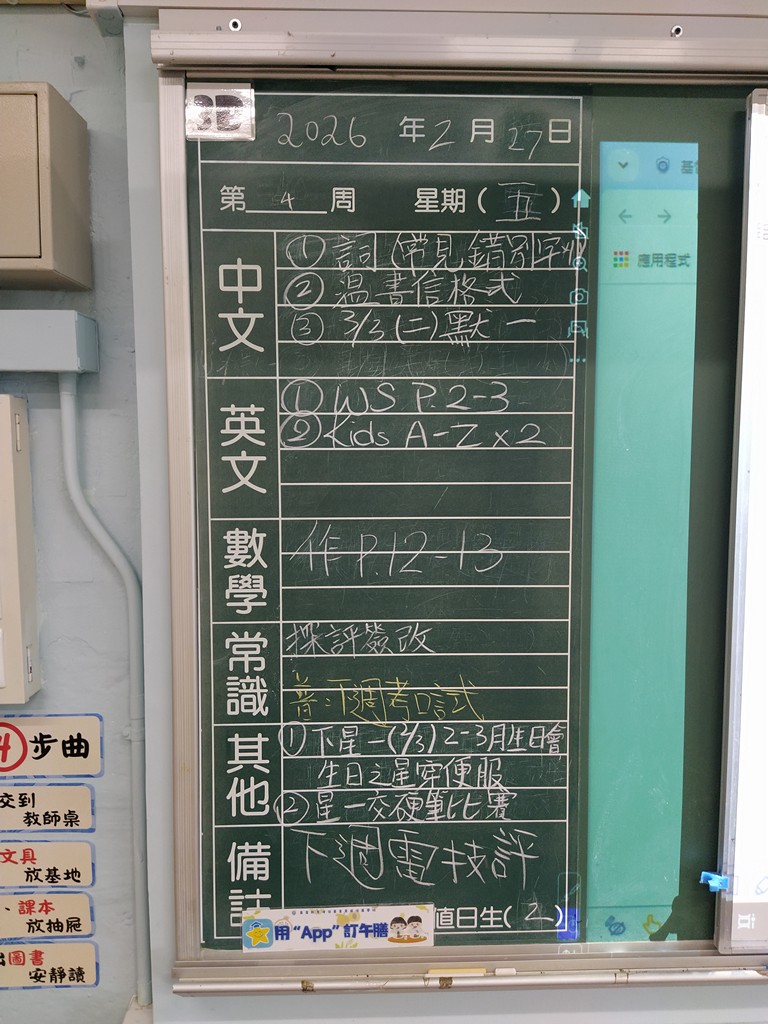 3D
2026 年 2 月 27 日
第 4 周 星期 ( 五 )
中文
① 詞 (常見錯別字
② 溫書信格式
③ 3/3 (二) 默一
英文
① WS P.2-3
② Kids A-Z x 2
數學
作 P.12-13
常識
探評簽改
普:下週考口試
其他
① 下星一(2/3) 2-3月生日會
生日之星穿便服
② 星一交硬筆比賽
備註
下週電技評
值日生( 2 )
用 "App" 訂午膳
應用程式
4 步曲
交到
教師桌
文具
放基地
、課本
放抽屜
圖書
安靜讀